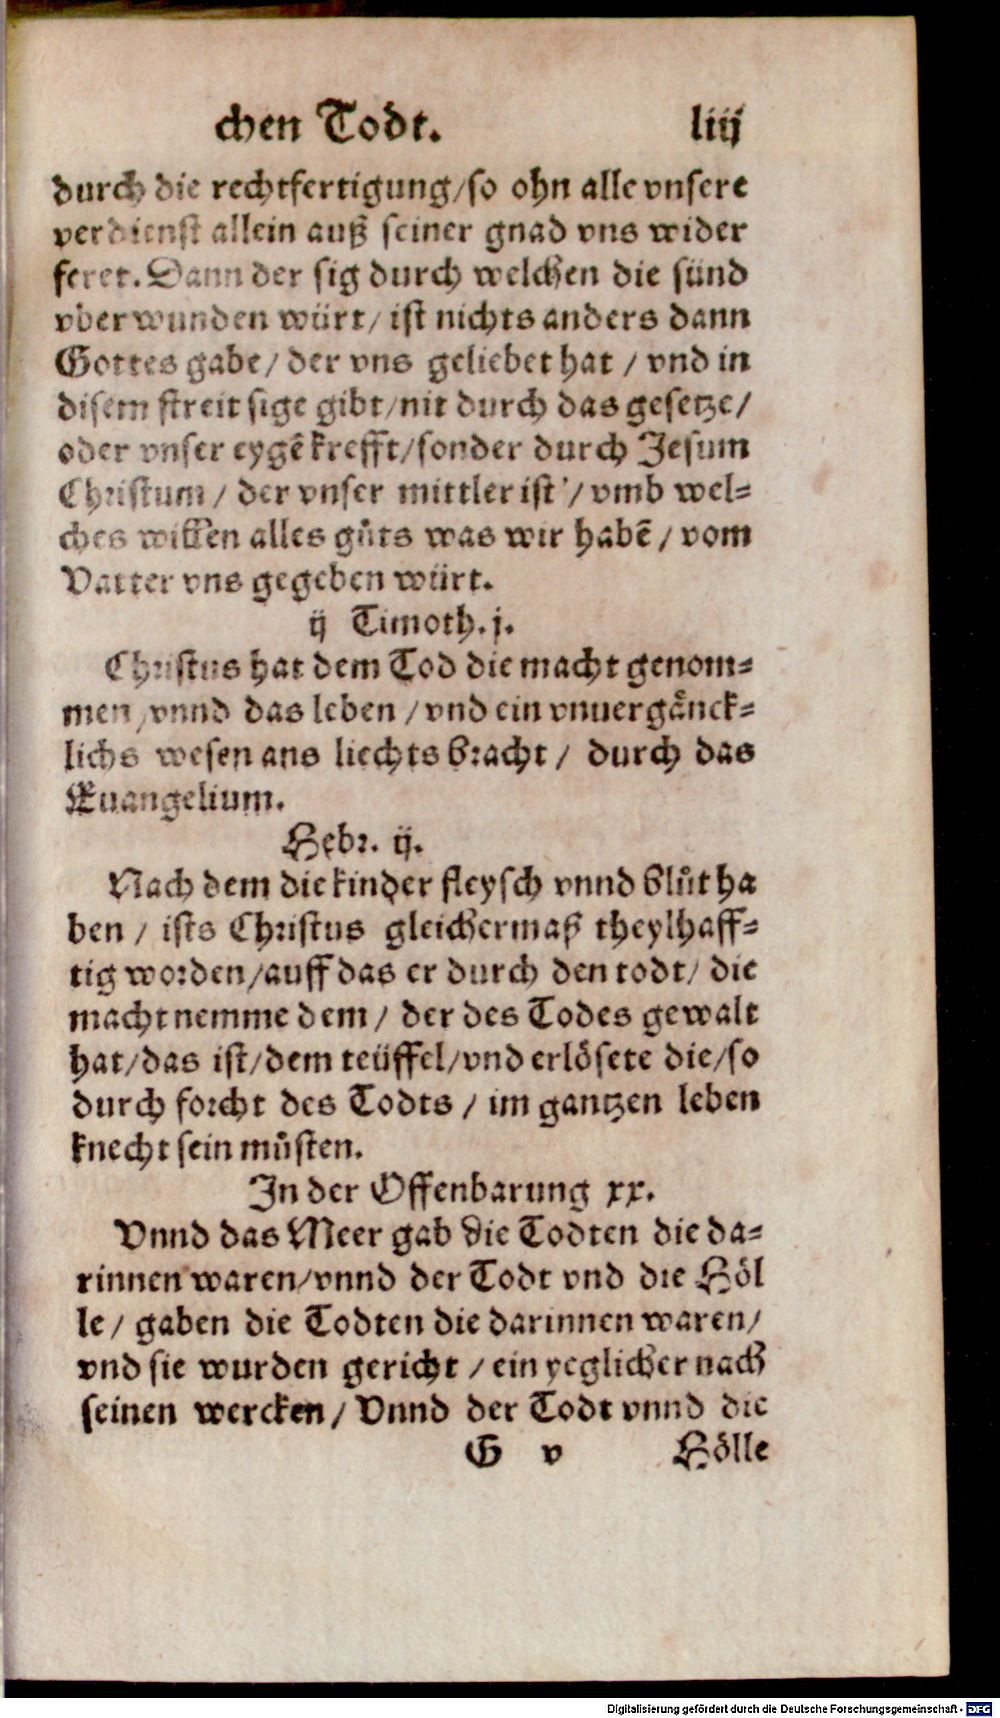 chen Todt. liij
durch die rechtfertigung/so ohn alle vnsere
verdienst allein auß seiner gnad vns wider
feret. Dann der sig durch welchen die sünd
vberwunden würt/ ist nichts anders dann
Gottes gabe/ der vns geliebet hat / vnd in
disem streit sige gibt/nit durch das gesetze/
oder vnser eygē krefft/sonder durch Jesum
Christum / der vnser mittler ist / vmb wel=
ches willen alles gůts was wir habē / vom
Vatter vns gegeben würt.
ij Timoth. j.
Christus hat dem Tod die macht genom=
men/vnnd das leben / vnd ein vnuergånck=
lichs wesen ans liechts bracht / durch das
Euangelium.
Hebr. ij.
Nach dem die kinder fleysch vnnd blůt ha
ben / ists Christus gleichermaß theylhaff=
tig worden/auff das er durch den todt/ die
macht nemme dem / der des Todes gewalt
hat/das ist/dem teüffel/vnd erlösete die/so
durch forcht des Todts / im gantzen leben
knecht sein můsten.
In der Offenbarung xx.
Vnnd das Meer gab die Todten die da=
rinnen waren/vnnd der Todt vnd die Höl
le / gaben die Todten die darinnen waren/
vnd sie wurden gericht / ein yeglicher nach
seinen wercken / Vnnd der Todt vnnd die
G v Hölle
Digitalisierung gefördert durch die Deutsche Forschungsgemeinschaft - DFG